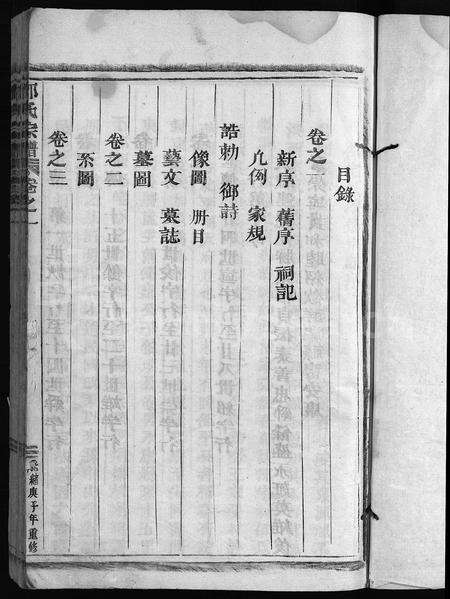 目錄
卷之一
新序 舊序 祠記
凡例 家規
誥勅 御詩
像圖 册目
藝文 墓誌
墓圖
卷之二
系圖
卷之三
氏宗譜 卷之一
緒庚子年重修